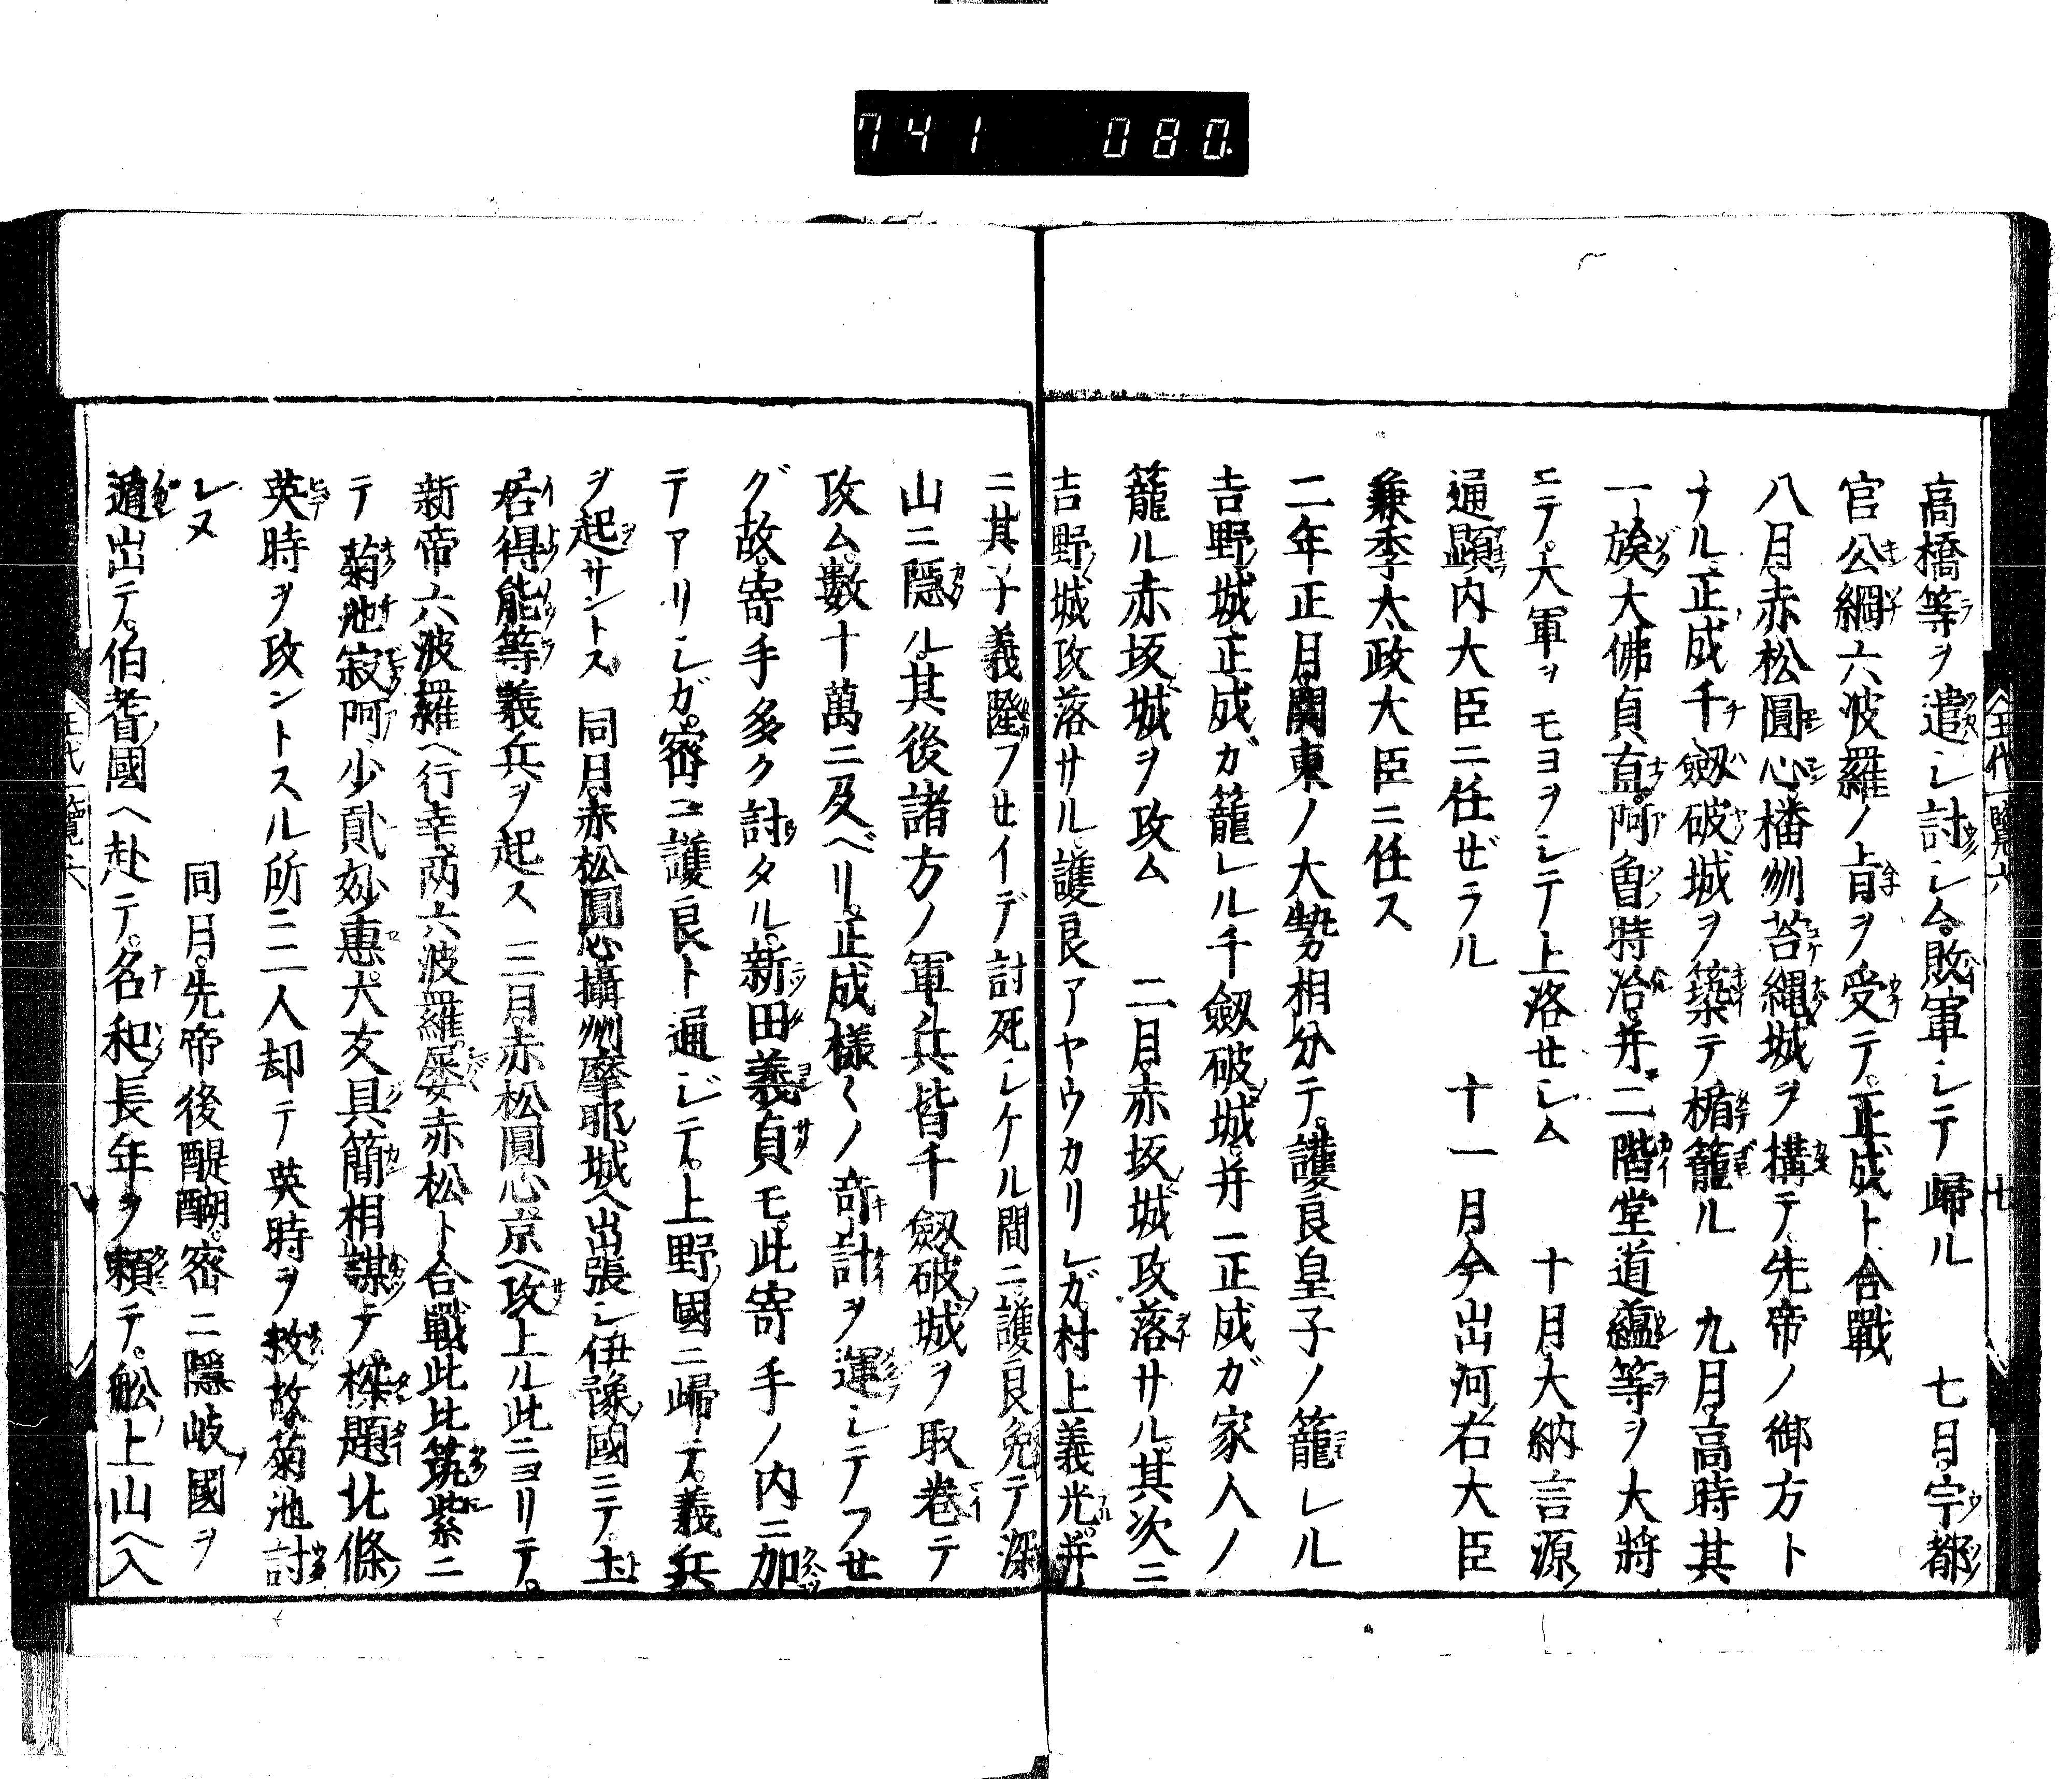 741 080
王代一覽六 七
高橋等ヲ遣シ討シム。敗軍シテ歸ル 七月宇都
官公綱六波羅ノ旨ヲ受テ。正成ト合戰
八月赤松圓心。播州苔縄城ヲ構テ。先帝ノ御方ト
ナル。正成千劔破城ヲ築テ楯籠ル 九月高時其
一族大佛貞直。阿曽時治。并ニ二階堂道蘊等ヲ大將
ニテ。大軍ヲモヨヲシテ上洛セシム 十月大納言源
通顕内大臣ニ任ぜラル 十一月今出河右大臣
兼季太政大臣ニ任ス
二年正月関東ノ大勢相分テ。護良皇子ノ籠レル
吉野城。正成ガ籠レル千劔破城。并ニ正成ガ家人ノ
籠ル赤坂城ヲ攻ム 二月赤坂城攻落サル。其次ニ
吉野城攻落サル。護良アヤウカリシガ。村上義光。并
ニ其子義隆フセイデ討死シケル間ニ。護良免テ深
山ニ隱ル。其後諸方ノ軍兵皆千劔破城ヲ取巻テ
攻ム。數十萬ニ及ベリ。正成様〱ノ奇計ヲ運シテフセ
グ故。寄手多ク討タル。新田義貞モ。此寄手ノ内ニ加
テアリシガ。密ニ護良ト通ジテ。上野國ニ歸テ。義兵
ヲ起サントス 同月赤松圓心攝州摩耶城ヘ出張シ伊豫國ニテ。土
居得能等義兵ヲ起ス 三月赤松圓心京ヘ攻上ル此ニヨリテ。
新帝六波羅ヘ行幸両六波羅屡赤松ト合戰此比筑紫ニ
テ菊池寂阿少貳妙惠。大友具簡相謀テ。探題北條
英時ヲ攻ントスル所ニ二人却テ英時ヲ救故菊池討
レヌ 同月。先帝後醍醐。密ニ隱岐國ヲ
遁出テ。伯耆國ヘ赴テ。名和長年ヲ頼テ。舩上山ヘ入
王代一覽六